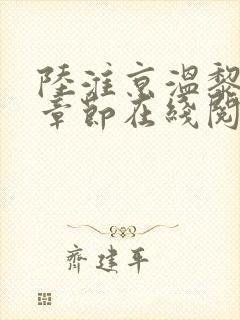 陸淮京溫黎
章節在綫閱
齊建平